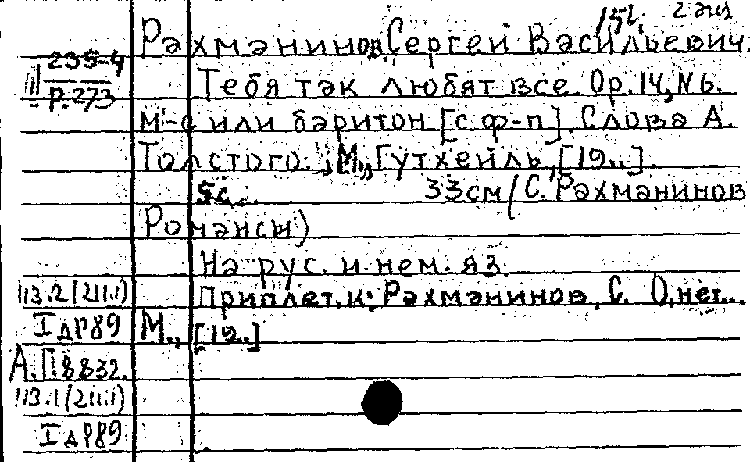 2 экз
Рахманинов, Сергей Васильевич.
235-4
Р.273
Тебя так любят все. Ор. 14, № 6.
м-с или баритон [с ф-п]. Слова А.
Толстого. М., Гутхейль, [19..].
5с. 33см (С. Рахманинов
Романсы)
На рус. и нем. яз.
113.2(211.1) Приплет. к: Рахманинов, С. О, нет...
I др89 М., [19..]
А.П8832.
113.1(211.1)
I др89